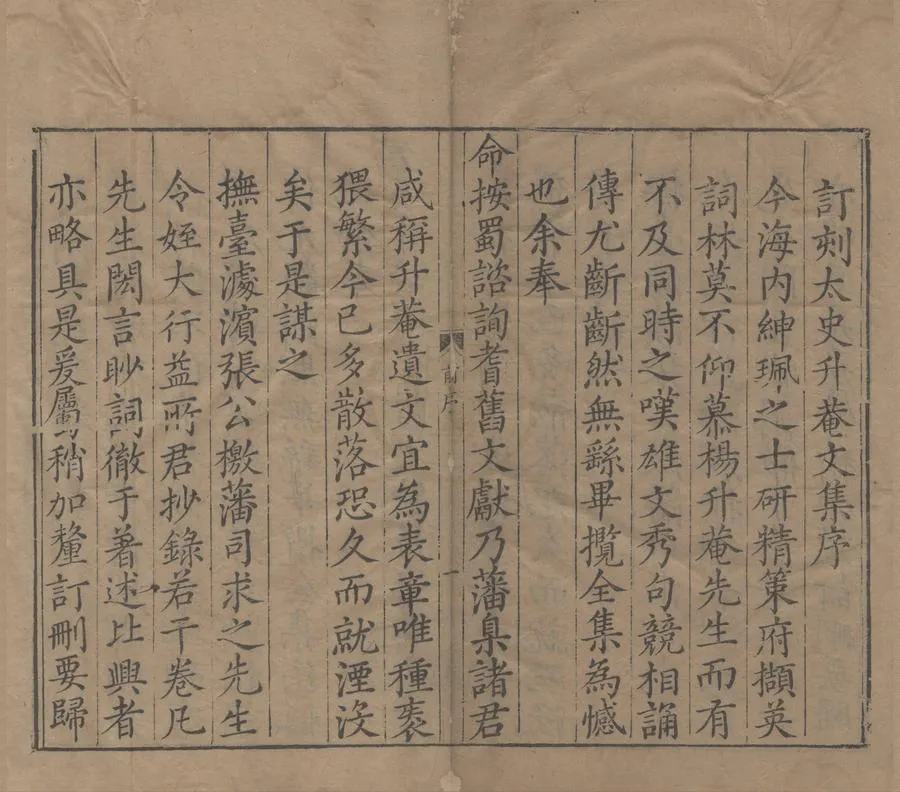 訂刻太史升菴文集序
今海內紳珮之士研精策府擷英
詞林莫不仰慕楊升菴先生而有
不及同時之嘆雄文秀句競相誦
傳尤齗齗然無繇畢攬全集為憾
也余奉
命按蜀諮詢耆舊文獻乃藩臬諸君
前序
一
咸稱升菴遺文宜為表章唯種袠
猥繁今已多散落恐久而就湮沒
矣于是謀之
撫臺濾濱張公檄藩司求之先生
令姪大行益所君抄錄若干卷凡
先生閎言眇詞徹于著述比興者
亦略具是爰屬稍加釐訂刪要歸